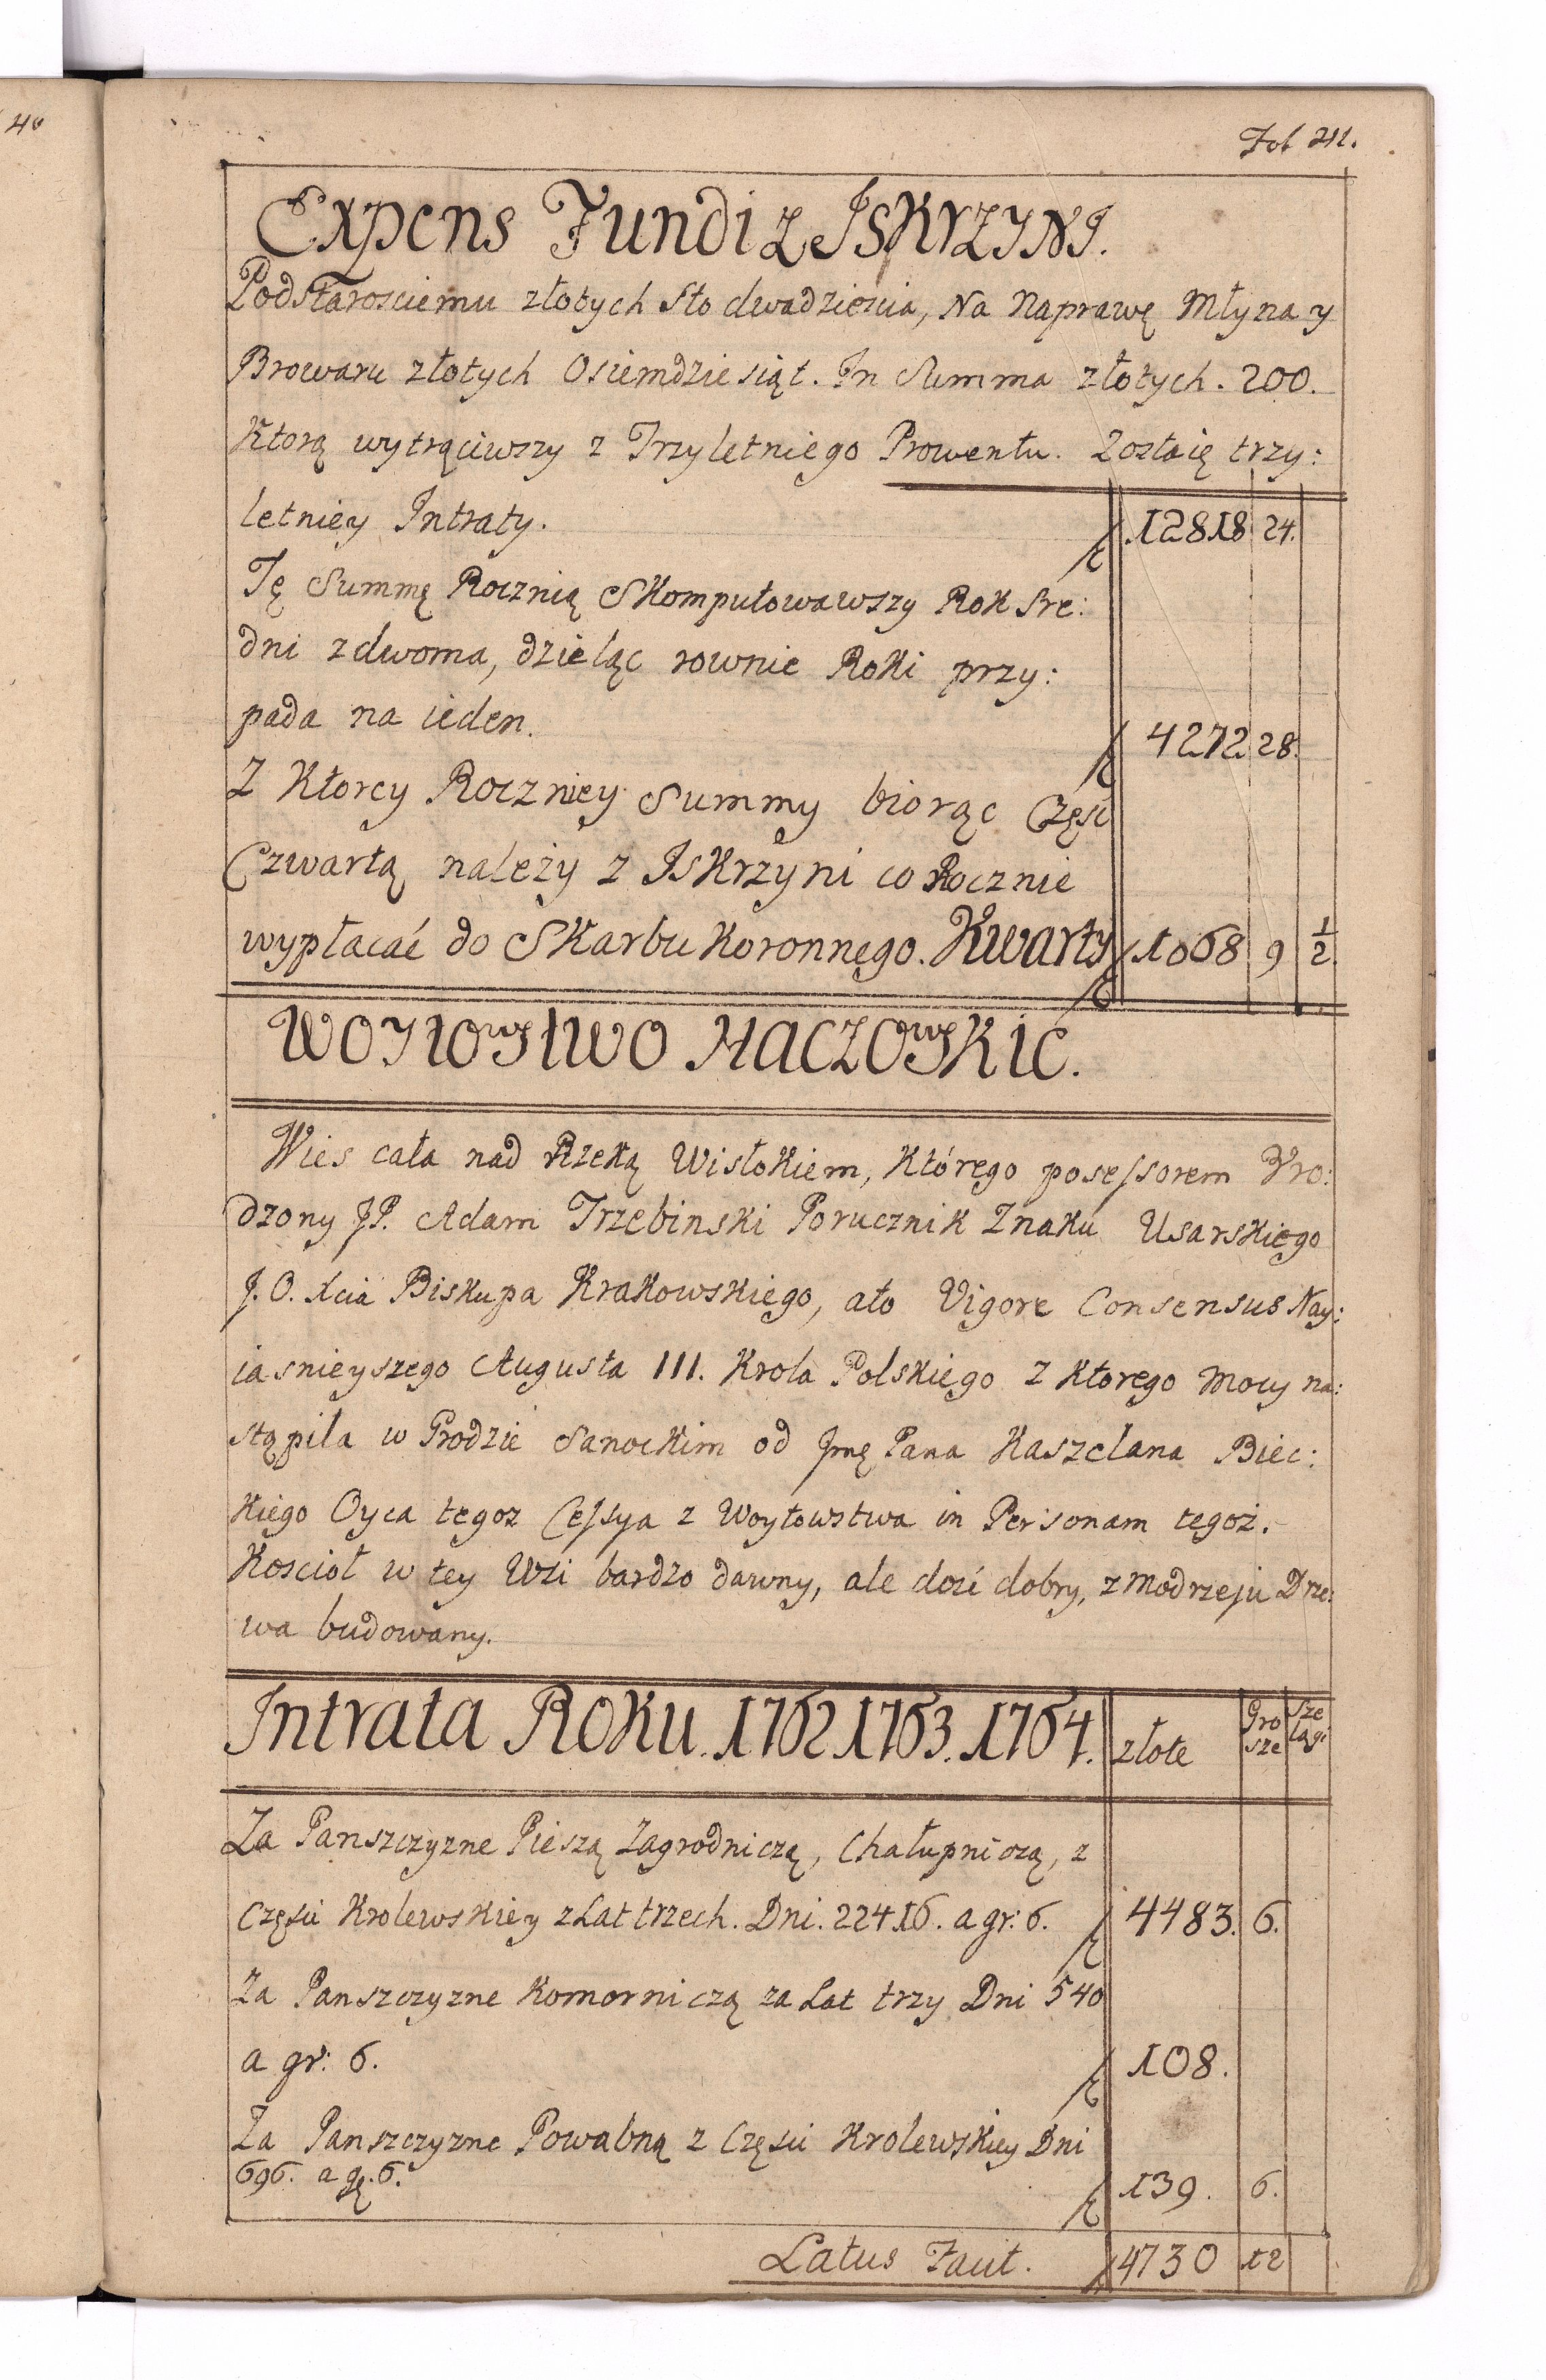 40
Fol 211.
Expens Fundi z Iskrzyni.
Podstarosciemu złotych sto dwadziescia, Na Naprawę Młyna y
Browaru złotych Osiemdziesiąt. In Summa złotych. 200.
Ktorą wytrąciwszy z Trzyletniego Prowentu. Zostaię trzy:
letniey Intraty. 12818 24.
Tę Summę Rocznią Skomputowawszy Rok Sre:
dni z dwoma, dzieląc rownie Roki przy:
pada na ieden. 4272 28.
Z Ktorey Roczniey Summy biorąc Częsc
Czwartą należy z Iskrzyni co Rocznie
wypłacać do Skarbu Koronnego. Kwarty 1068 9 1/2.
Woytowstwo Haczowskie.
Wies cała nad Rzeką Wisłokiem, Którego possessorem Vro:
dzony JP. Adam Trzebinski Porucznik Znaku Usarskiego
J.O. Xcia Biskupa Krakowskiego, ato Vigore Consensus Nay:
iasnieyszego Augusta III. Krola Polskiego z Ktorego Mocy na:
stąpila w Grodzie Sanockim od Jmę Pana Kasztelana Biec:
kiego Oyca tegoz Cessya z Woytowstwa in Personam tegoż.
Koscioł w tey Wsi bardzo dawny, ale dosć dobry, z Modrzeju Drze:
wa budowany.
Intrata Roku. 1762 1763. 1764. złote Gro sze Sze lągi
Za Panszczyzne Pieszą Zagrodniczą, Chałupniczą, z
Częsci Krolewskiey z Lat trzech. Dni. 22416. a gr: 6. 4483. 6.
Za Panszczyzne Komorniczą za Lat trzy Dni 540
a gr: 6. 108.
Za Panszczyzne Powabną z Częsci Krolewskiey Dni
696. a g. 6. 139. 6.
Latus Facit. 4730 12